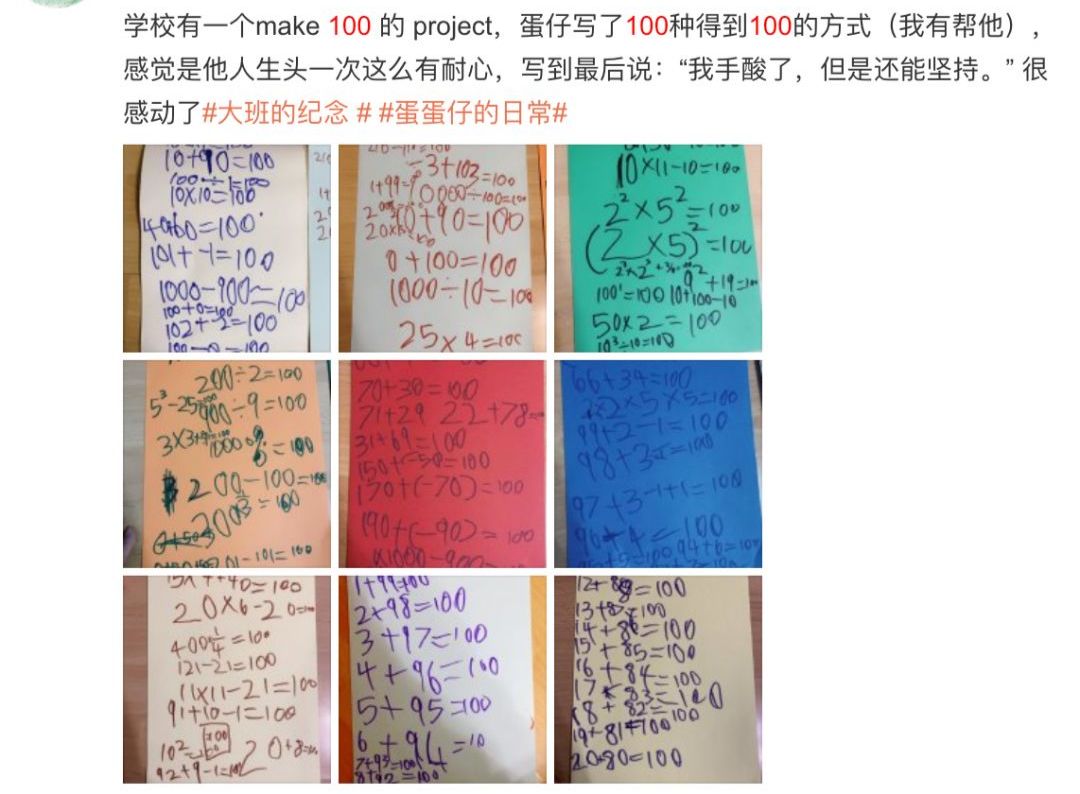 学校有一个make 100 的 project，蛋仔写了100种得到100的方式（我有帮他），
感觉是他人生头一次这么有耐心，写到最后说：“我手酸了，但是还能坚持。” 很
感动了#大班的纪念 # #蛋蛋仔的日常#
10+90=100
10x10=100
101+-1=100
1000-900=100
100+0=100
102+-2=100
0+90=100
0+100=100
1000÷10=100
25x4=100
10×11-10=100
2²×5²=100
(2×5)²=100
50x2=100
10³÷10=100
200÷2=100
900÷9=100
200-100=100
70+30=100
71+29 22+78=100
31+69=100
150+(-50=100
170+(-70)=100
190+(-90)=100
66+34=100
2x2x5x5=100
99+2-1=100
97+3-1+1=100
20×6-20=100
121-21=100
11x11-21=100
91+10-1=100
92+9-1=100
1+99=100
2+98=100
3+97=100
4+96=100
5+95=100
6+94=10
7+93=100
8+92=100
12+88=100
13+87=100
14+86=100
15+85=100
16+84=100
17+83=100
18+82=100
19+81=100
20+80=100